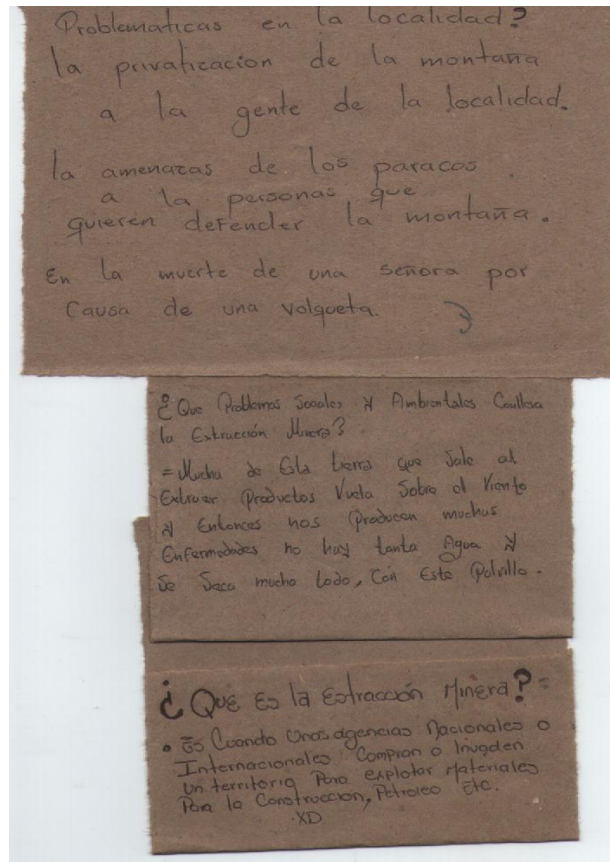 Problematicas en la localidad?
la privatizacion de la montaña
a la gente de la localidad.
la amenazas de los paracos
a la personas que
quieren defender la montaña.
En la muerte de una señora por
Causa de una volqueta.
¿Que Problemas Sociales y Ambientales Conlleva
la Extracción Minera?
= Mucha de Esta tierra que Sale al
Extraer Productos Vuela Sobre el Viento
y Entonces nos Producen muchas
Enfermedades no hay tanta Agua y
Se Saca mucho Lodo, Con Este Polvillo.
¿Que Es la Extracción Minera? =
• Es Cuando Unas agencias Nacionales o
Internacionales Compran o Invaden
un territorio Para explotar Materiales
Para la Construccion, Petroleo Etc.
XD